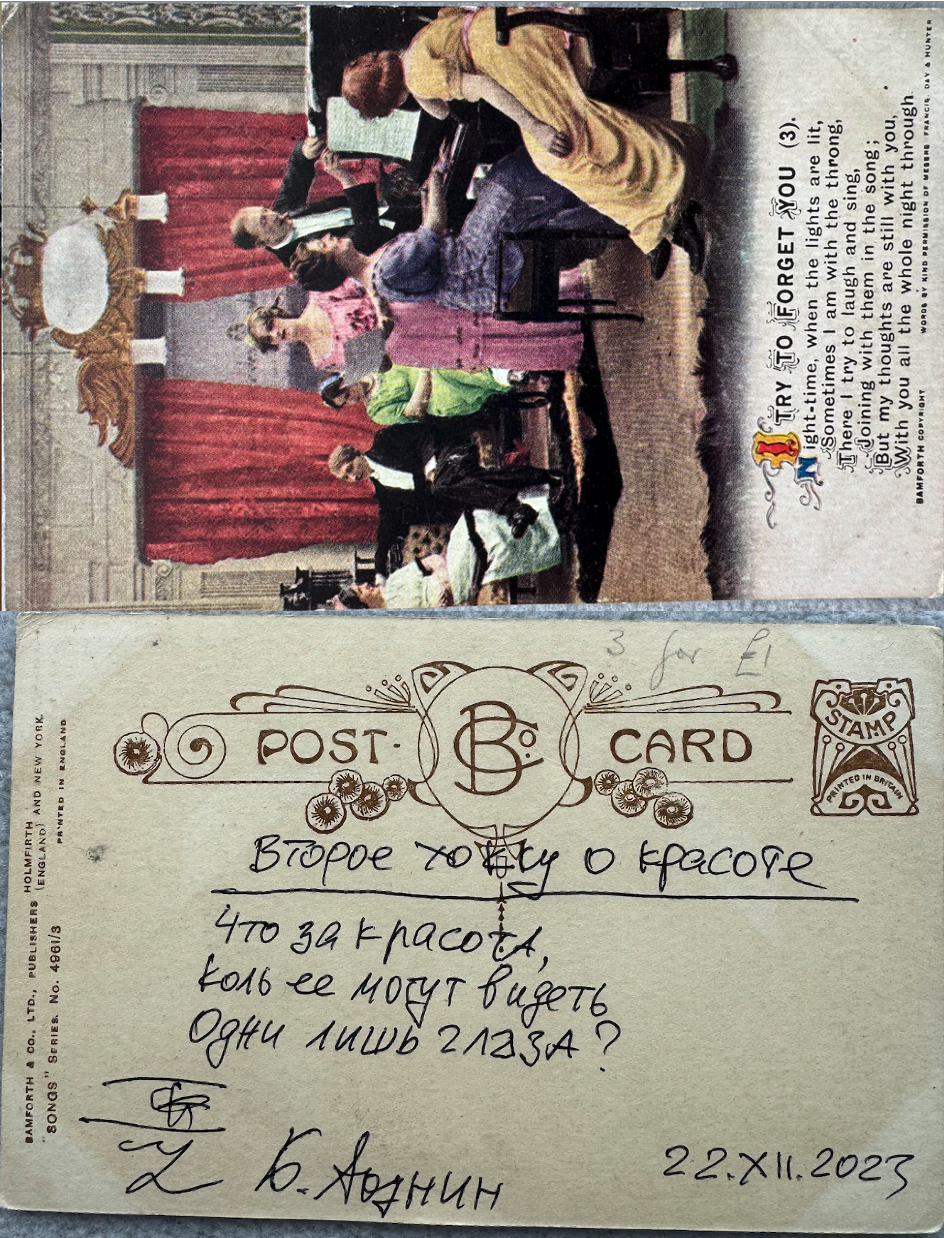 I TRY TO FORGET YOU (3).
Night-time, when the lights are lit,
Sometimes I am with the throng,
There I try to laugh and sing,
Joining with them in the song;
But my thoughts are still with you,
With you all the whole night through.
BAMFORTH COPYRIGHT WORDS BY KIND PERMISSION OF MESSRS FRANCIS, DAY & HUNTER
3 for £1
POST- BCo. CARD
STAMP
PRINTED IN BRITAIN
BAMFORTH & CO., LTD., PUBLISHERS HOLMFIRTH (ENGLAND) AND NEW YORK.
"SONGS" SERIES. No. 4961/3
PRINTED IN ENGLAND
Второе хокку о красоте
Что за красота,
коль ее могут видеть
Одни лишь глаза?
22.XII.2023